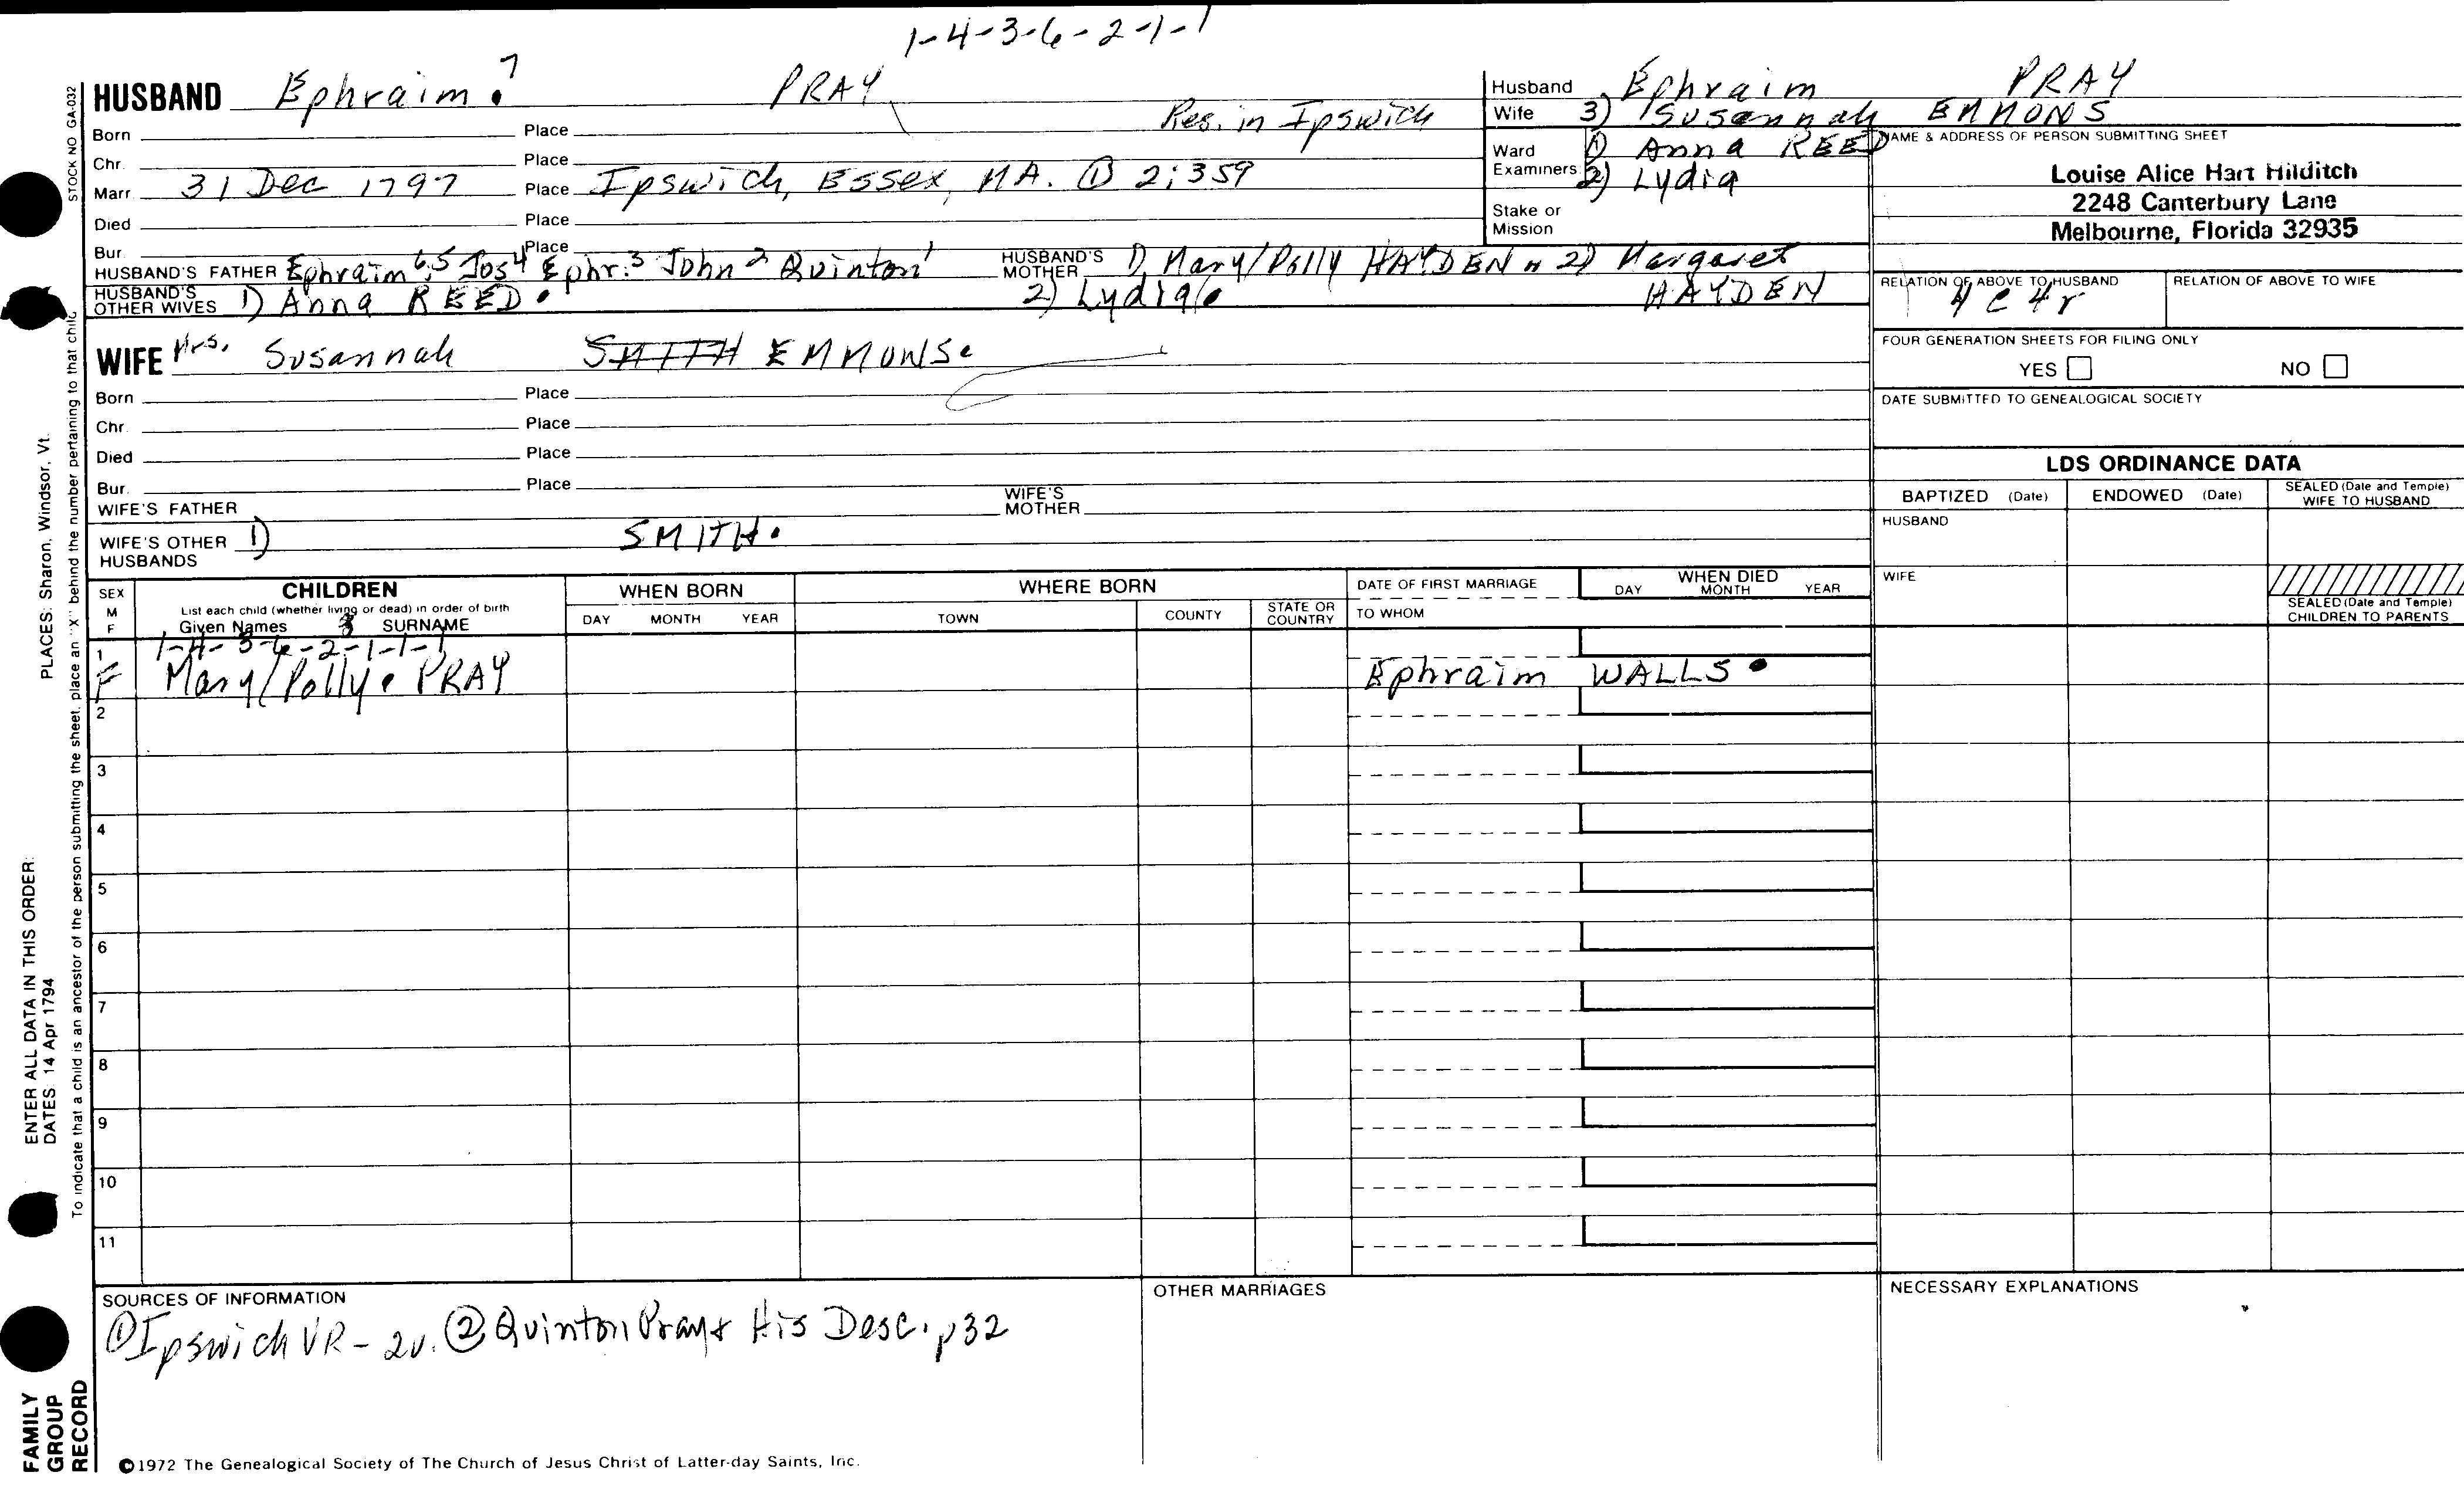 1-4-3-6-2-1-1
HUSBAND Ephraim 7 PRAY
Res. in Ipswich
Born Place
Chr. Place
Marr. 31 Dec 1797 Place Ipswich, Essex, MA. ① 2:359
Died Place
Bur. Place
HUSBAND'S FATHER Ephraim 6,5 Jos 4 Ephr. 3 John 2 Quinton 1 HUSBAND'S MOTHER 1) Mary/Polly HAYDEN 2) Margaret HAYDEN
HUSBAND'S OTHER WIVES 1) Anna REED. 2) Lydia
WIFE Mrs. Susannah SMITH EMMONS
Born Place
Chr. Place
Died Place
Bur. Place
WIFE'S FATHER WIFE'S MOTHER
WIFE'S OTHER HUSBANDS 1) SMITH.
Husband Ephraim PRAY
Wife 3) Susannah EMMONS
Ward ① Anna REED
Examiners: 2) Lydia
Stake or Mission
NAME & ADDRESS OF PERSON SUBMITTING SHEET
Louise Alice Hart Hilditch
2248 Canterbury Lane
Melbourne, Florida 32935
RELATION OF ABOVE TO HUSBAND RELATION OF ABOVE TO WIFE
4 C 4 r
FOUR GENERATION SHEETS FOR FILING ONLY
YES NO
DATE SUBMITTED TO GENEALOGICAL SOCIETY
LDS ORDINANCE DATA
BAPTIZED (Date) ENDOWED (Date) SEALED (Date and Temple) WIFE TO HUSBAND
HUSBAND
WIFE
SEALED (Date and Temple) CHILDREN TO PARENTS
SEX M F
CHILDREN
List each child (whether living or dead) in order of birth
Given Names SURNAME
WHEN BORN
DAY MONTH YEAR
WHERE BORN
TOWN COUNTY STATE OR COUNTRY
DATE OF FIRST MARRIAGE
TO WHOM
WHEN DIED
DAY MONTH YEAR
1-4-3-6-2-1-1-1
1 F Mary/Polly PRAY Ephraim WALLS
2
3
4
5
6
7
8
9
10
11
SOURCES OF INFORMATION
① Ipswich VR - 2v. ② Quinton Pray & His Desc. p32
OTHER MARRIAGES
NECESSARY EXPLANATIONS
©1972 The Genealogical Society of The Church of Jesus Christ of Latter-day Saints, Inc.
STOCK NO GA-032
To indicate that a child is an ancestor of the person submitting the sheet, place an "X" behind the number pertaining to that child.
PLACES: Sharon, Windsor, Vt.
ENTER ALL DATA IN THIS ORDER:
DATES: 14 Apr 1794
FAMILY
GROUP
RECORD